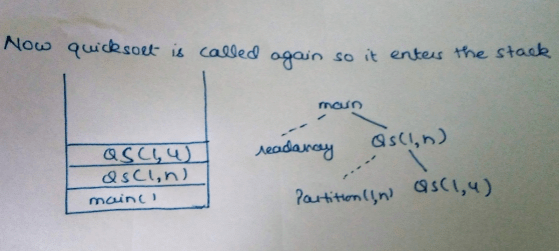 Now quicksort is called again so it enters the stack
main
readarray QS(1,n)
QS(1,4)
QS(1,n)
main()
Partition(1,n) QS(1,4)